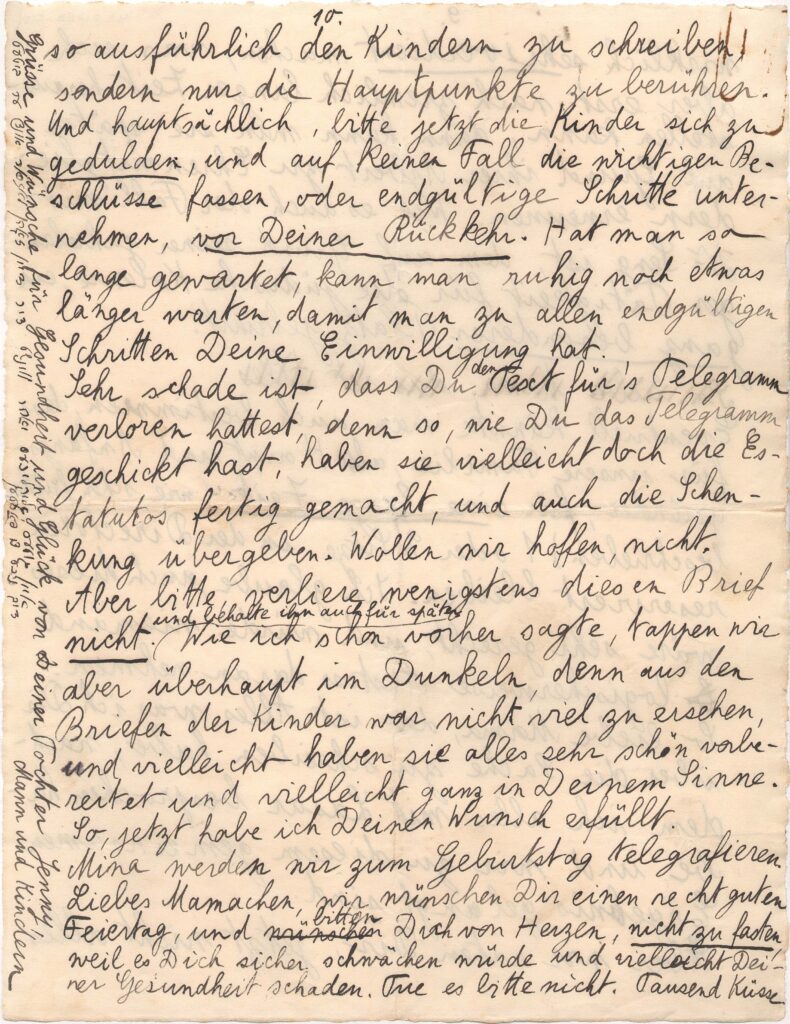 10.
so ausführlich den Kindern zu schreiben,
sondern nur die Hauptpunkte zu berühren.
Und hauptsächlich, bitte jetzt die Kinder sich zu
gedulden, und auf keinen Fall die wichtigen Be-
schlüsse fassen, oder endgültige Schritte unter-
nehmen, vor Deiner Rückkehr. Hat man so
lange gewartet, kann man ruhig noch etwas
länger warten, damit man zu allen endgültigen
Schritten Deine Einwilligung hat.
Sehr schade ist, dass Du den Text für's Telegramm
verloren hattest, denn so, wie Du das Telegramm
geschickt hast, haben sie vielleicht doch die Es-
tatutos fertig gemacht, und auch die Schen-
kung übergeben. Wollen wir hoffen, nicht.
Aber bitte, verliere wenigstens diesen Brief
nicht. und behalte ihn auch für später Wie ich schon vorher sagte, tappen wir
aber überhaupt im Dunkeln, denn aus den
Briefen der Kinder war nicht viel zu ersehen,
und vielleicht haben sie alles sehr schön vorbe-
reitet und vielleicht ganz in Deinem Sinne.
So, jetzt habe ich Deinen Wunsch erfüllt.
Mina werden wir zum Geburtstag telegrafieren.
Liebes Mamachen, wir wünschen Dir einen recht guten
Feiertag, und wünschen bitten Dich von Herzen, nicht zu fasten,
weil es Dich sicher schwächen würde und vielleicht Dei-
ner Gesundheit schaden. Tue es bitte nicht. Tausend Küsse
Grüsse und Wünsche für Gesundheit und Glück von Deiner Tochter Jenny,
Mann und Kindern